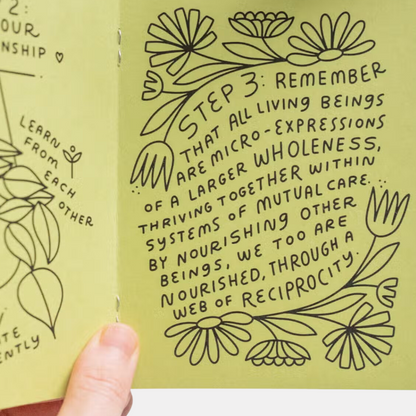 2:
OUR
NSHIP ♡
LEARN
FROM
EACH
OTHER
STEP 3: REMEMBER
THAT ALL LIVING BEINGS
ARE MICRO-EXPRESSIONS
OF A LARGER WHOLENESS,
THRIVING TOGETHER WITHIN
SYSTEMS OF MUTUAL CARE.
BY NOURISHING OTHER
BEINGS, WE TOO ARE
NOURISHED, THROUGH A
WEB OF RECIPROCITY.